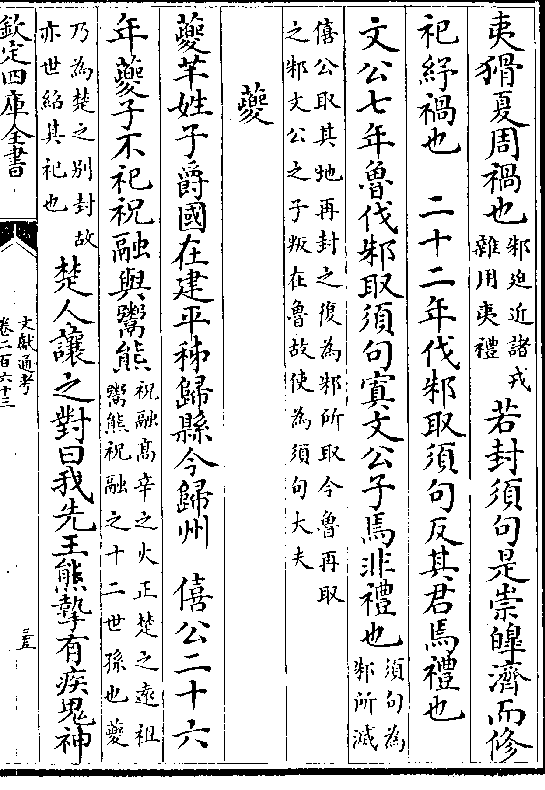 夷猾夏周禍也邾迫近諸戎雜用夷禮若封須句是崇皥濟而修
祀紓禍也　二十二年伐邾取須句反其君焉禮也
文公七年魯伐邾取須句寘文公子焉非禮也須句為邾所滅
僖公取其地再封之復為邾所取今魯再取之邾文公之子叛在魯故使為須句大夫
夔
夔芊姓子爵國在建平秭歸縣今歸州　僖公二十六
年夔子不祀祝融與鬻熊祝融高辛之火正楚之遠祖鬻熊祝融之十二世孫也夔
乃為楚之别封故亦世紹其祀也楚人讓之對曰我先王熊摯有疾鬼神
欽定四庫全書
文獻通考
卷二百六十三
三五